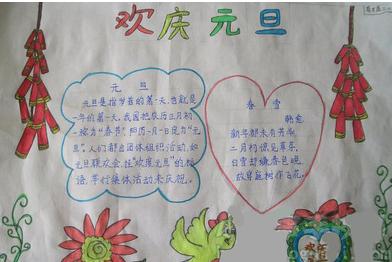 欢庆元旦
元旦
元旦是指岁首的第一天,也就是
一年的第一天,我国把农历正月初
一称为"春节",阳历一月一日定为"元
旦",人们都会团体组织活动,如
元旦联欢会,挂"欢度元旦"的标
语,举行集体活动来庆祝。
春雪
韩愈
新年都未有芳华,
二月初惊见草芽。
白雪却嫌春色晚,
故穿庭树作飞花。
欢乐